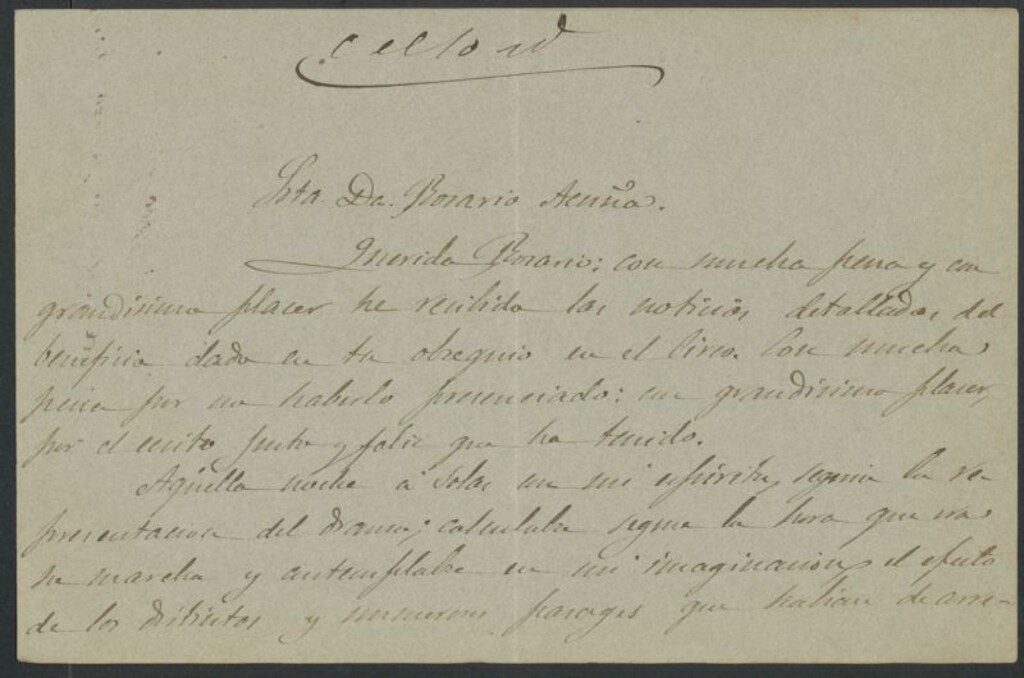 Srta. Da. Rosario Acuña.
Querida Rosario: con mucha pena y con
grandisimo placer he recibido las noticias detalladas del
beneficio dado en tu obsequio en el Circo. Con mucha
pena por no haberlo presenciado: con grandisimo placer,
por el exito justo y feliz que ha tenido.
Aquella noche a solas con mi espiritu, seguia la re-
presentacion del drama; calculaba segun la hora que era
su marcha y contemplaba en mi imaginacion el efecto
de los distintos y numerosos parages que habian de arre-